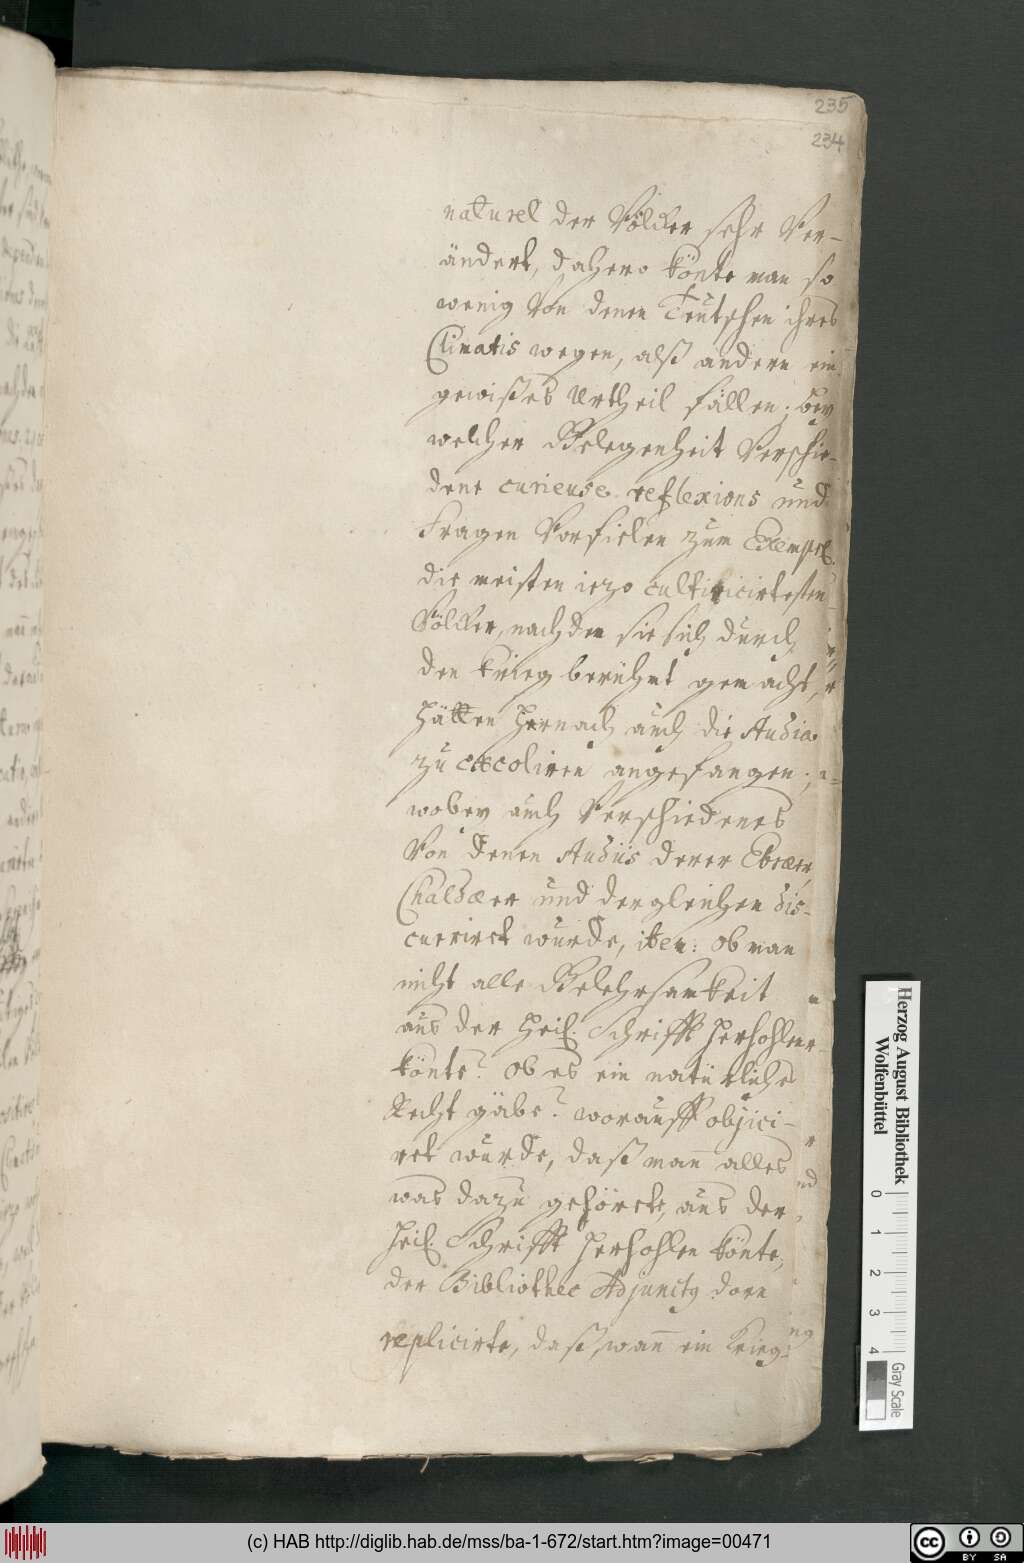 235
234
naturel der Völcker sehr Ver-
ändert, dahero könte man so
wenig Von denen Teutschen ihres
Climatis wegen, alß andern ein
gewißes Urtheil fällen; bey
welcher Gelegenheit Verschie-
dene curieuse reflexions und
Fragen Vorfielen zum Exempel.
die meisten iezo cultivicirtesten
Völcker, nachdem sie sich durch
den Krieg berühmt gemacht,
hätten hernach auch die Studia
zu excoliren angefangen;
wobey auch Verschiedenes
Von denen Studiis derer Ebræer,
Chaldæer und dergleichen dis-
curriret wurde, item: ob man
nicht alle Gelehrsamkeit
aus der Heil. Schrifft herhohlen
könte? ob es ein natürliches
Recht gäbe? worauff objici-
ret wurde, daß man alles
was dazu gehörete, aus der
Heil. Schrifft herhohlen könte,
der Bibliothec Adjunctg dorn
replicirte, daß, wañ ein Krieg
Herzog August Bibliothek
Wolfenbüttel
0 1 2 3 4
Gray Scale
(c) HAB http://diglib.hab.de/mss/ba-1-672/start.htm?image=00471
cc BY SA